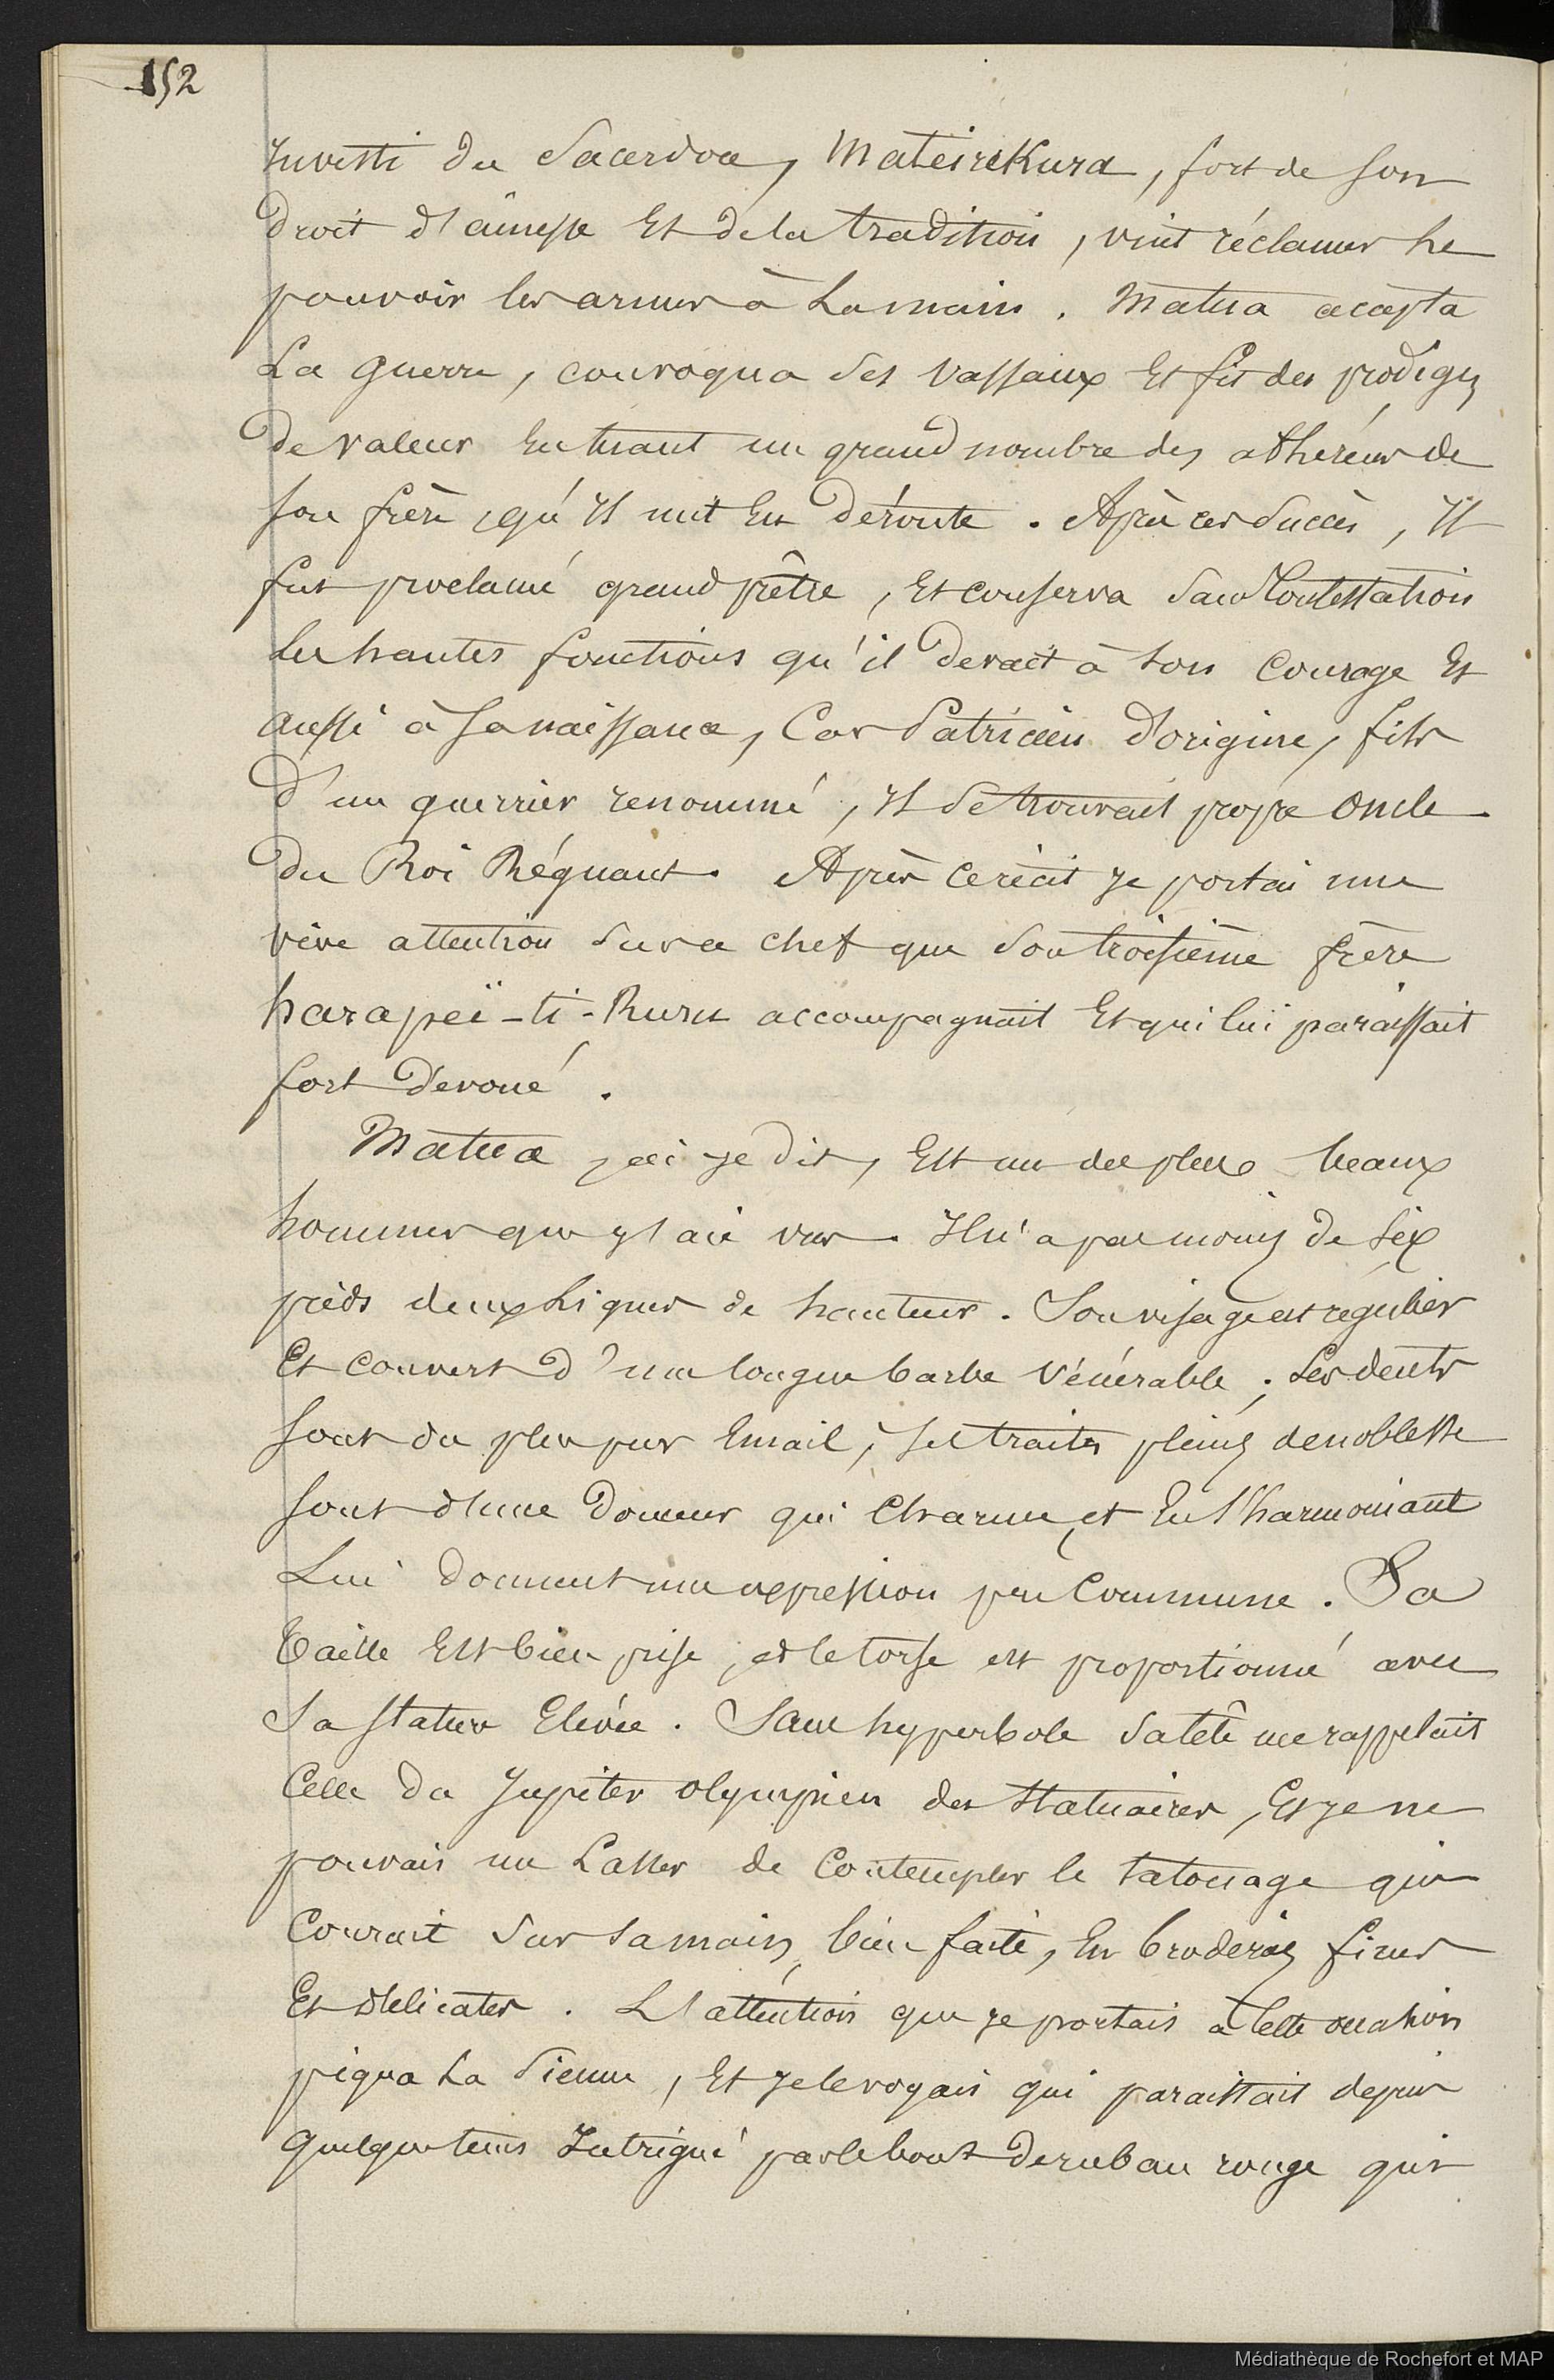 152
Investi du Sacerdoce, Mateirekura, fort de son
Droit d'aînesse Et de la tradition, vint réclamer le
pouvoir les armes à La main. Matua accepta
La guerre, convoqua ses vassaux Et fit des prodiges
De valeur En tuant un grand nombre des adhéreurs de
son frère, qu'Il mit En Déroute. Après ces Succès, Il
fut proclamé grand prêtre, Et conserva Sans Contestation
Les hautes fonctions qu'il Devait à son Courage Et
aussi à sa naissance, Car Patricien D'origine, fils
D'un guerrier renommé, Il Se trouvait propre Oncle
Du Roi Régnant. Après ce récit Je portai une
vive attention Sur ce chef que Son troisième frère
harapeï-ti-Ruru accompagnait Et qui lui paraissait
fort Dévoué.
Matua, ai-je Dit, Est un des plus beaux
hommes que j'aie vus. Il n'a pas moins De Six
pieds deux Lignes de hauteur. Son visage est régulier
Et couvert D'une longue barbe Vénérable; Ses dents
sont du plus pur Email, ses traits pleins de noblesse
sont d'une Douceur qui Charme, et En s'harmoniant
Lui Donnent une expression peu Commune. Sa
taille Est bien prise, et le torse est proportionné avec
Sa stature Elévée. Sans hyperbole Sa tête me rappelait
Celle Du Jupiter olympien des Statuaires, Et je ne
pouvais me Lasser de Contempler le tatouage qui
Courait Sur sa main bien faite, En broderies fines
Et délicates. L'attention que je portais à Cette occasion
piqua La Sienne, Et je le voyais qui paraissait depuis
quelque tems Intrigué par le bout De ruban rouge qui
Médiathèque de Rochefort et MAP